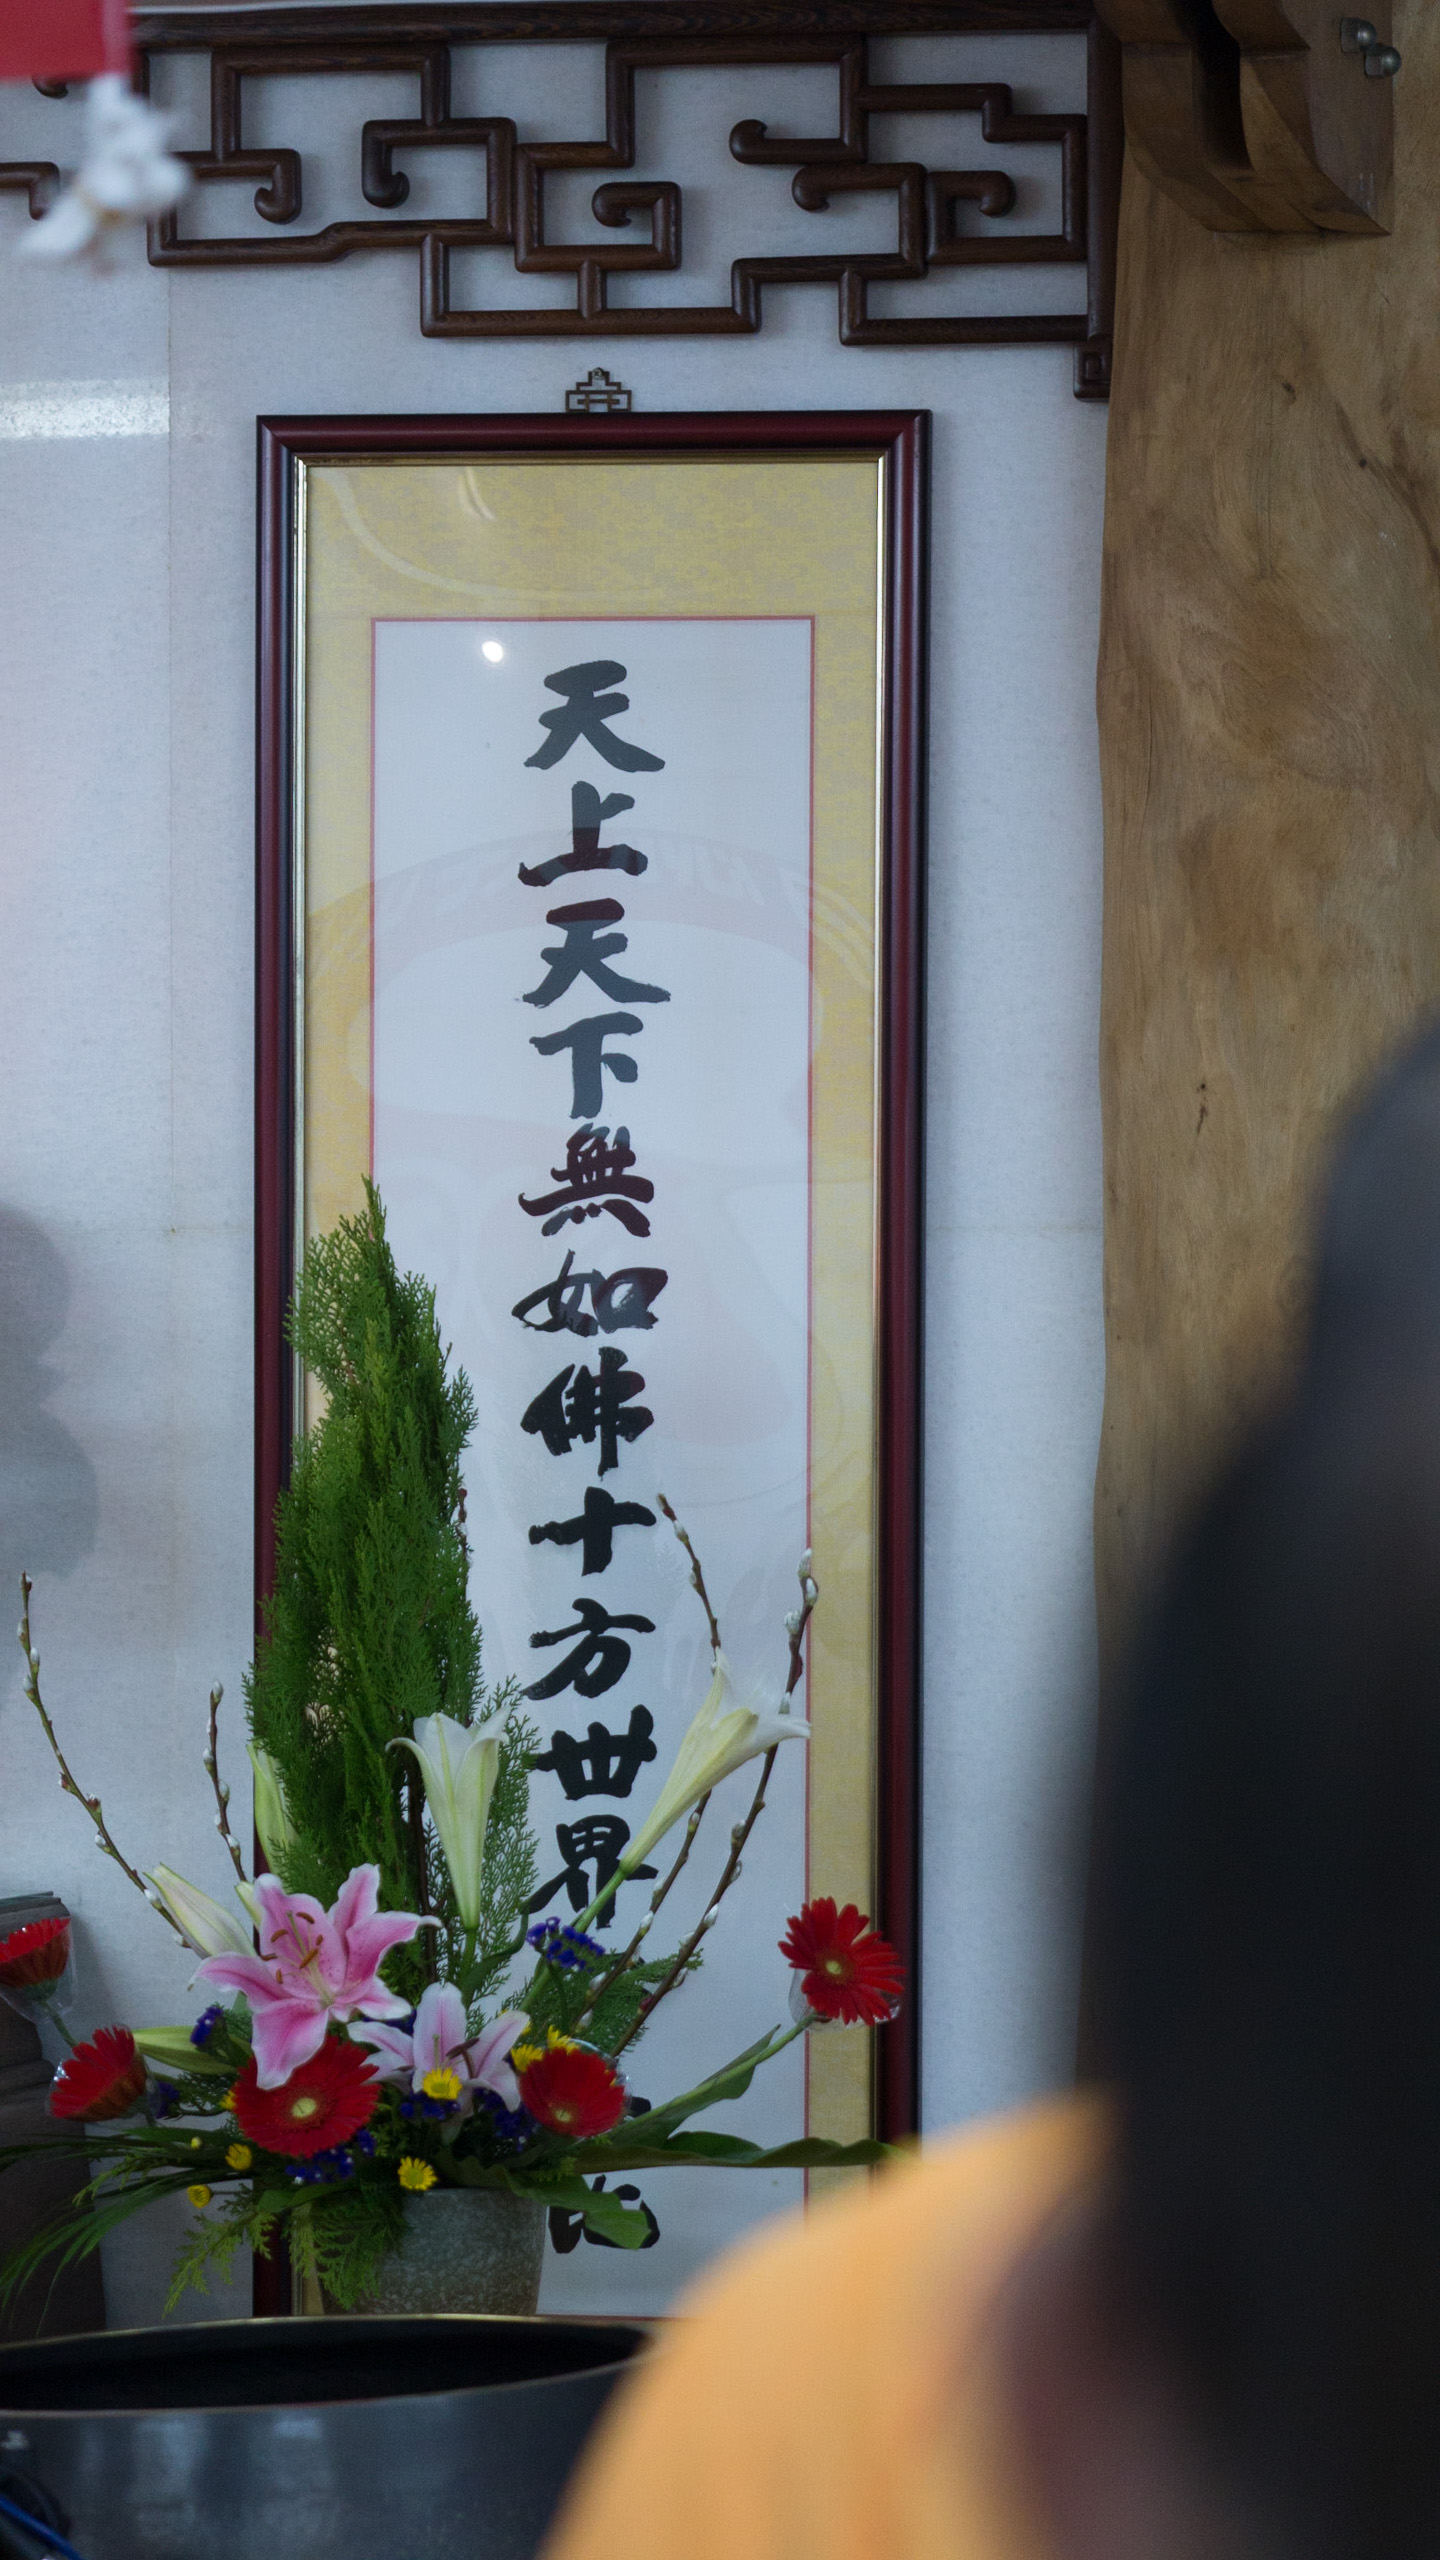 天上天下無如佛十方世界